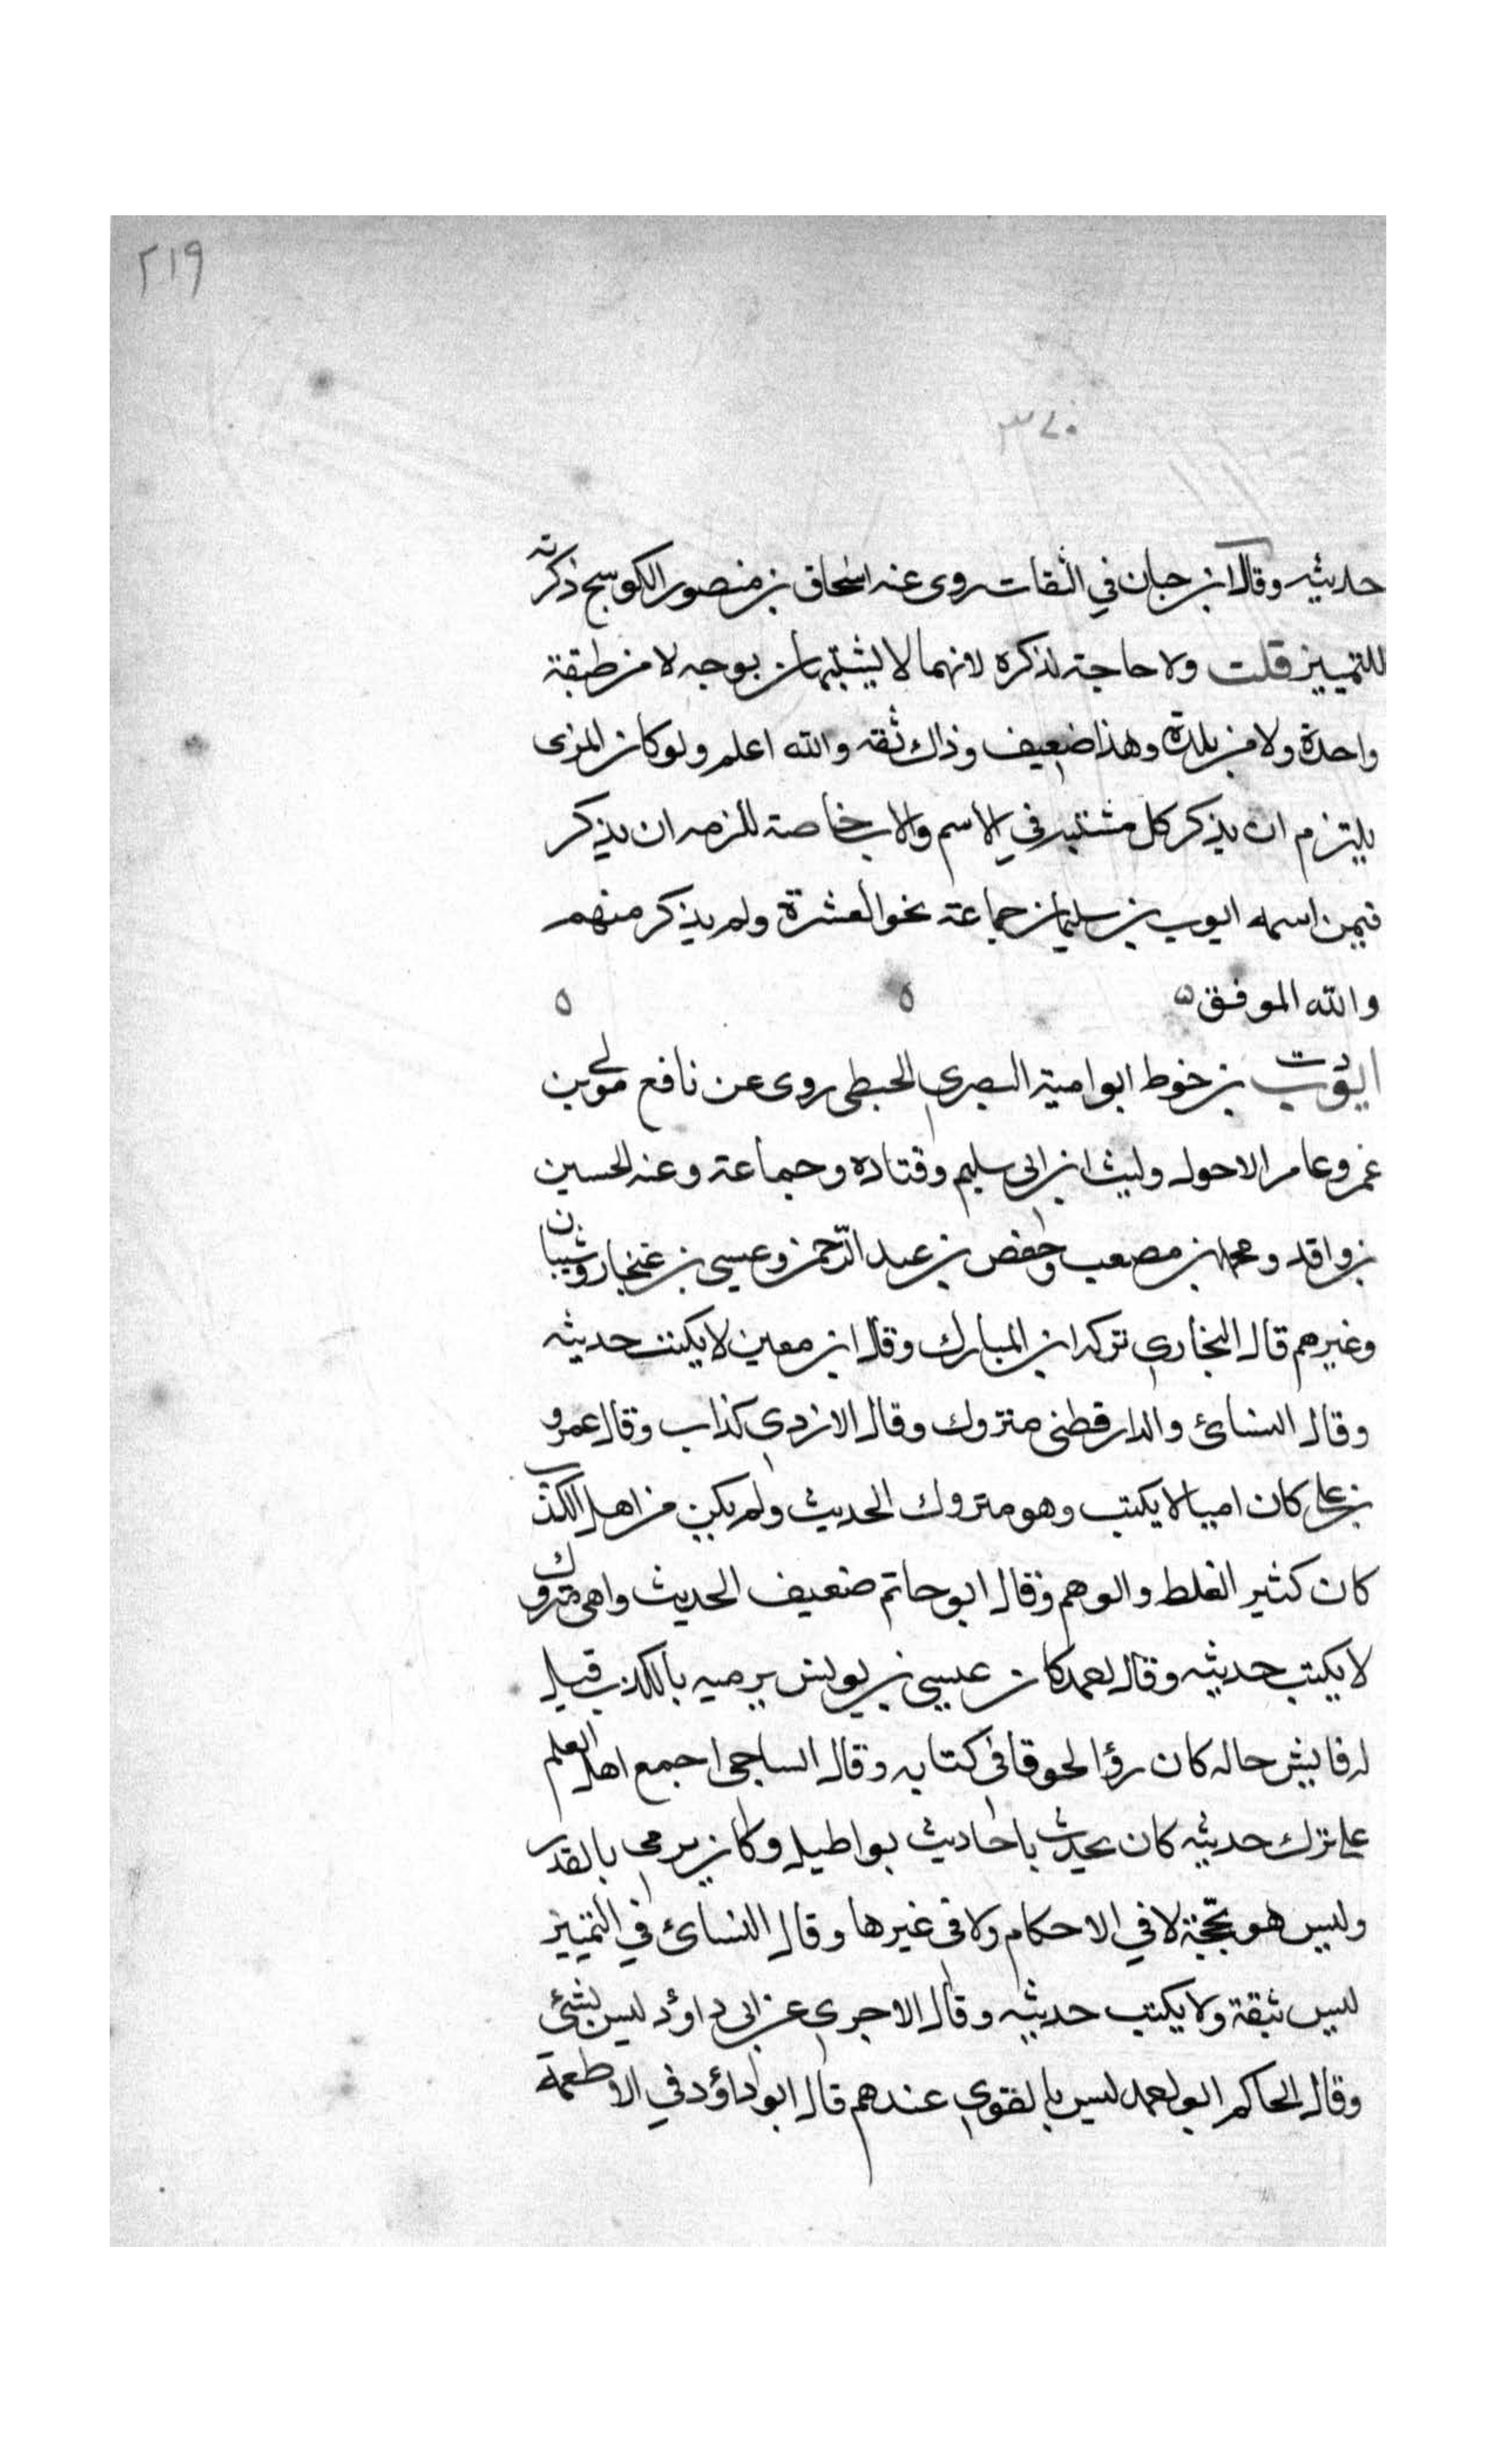 ٢١٩
٣٧٠
حديثه وقال ابن حبان في الثقات روى عنه اسحاق بن منصور الكوسج ذكرته
للتمييز قلت ولا حاجة لذكره لانهما لا يشتبهان بوجه لا من طبقة
واحدة ولا من بلدة وهذا ضعيف وذاك ثقه والله اعلم ولو كان المزى
يلتزم ان يذكر كل مشتبه في الاسم والاب خاصة للزمه ان يذكر
فيمن اسمه ايوب بن سليمان جماعة نحو العشرة ولم يذكر منهم
والله الموفق ه ه ه
ايوب بن خوط ابو امية البصري الحبطى روى عن نافع مولى بن
عمر وعامر الاحول وليث ابن ابى سليم وقتاده وجماعة وعنه الحسين
بن واقد ومحمد بن مصعب وحفص بن عبد الرحمن وعيسى بن غنجار وشيبان
وغيرهم قال البخاري تركه ابن المبارك وقال ابن معين لا يكتب حديثه
وقال النسائ والدارقطنى متروك وقال الازدي كذاب وقال عمرو
بن على كان اميا لا يكتب وهو متروك الحديث ولم يكن من اهل الكذب
كان كثير الغلط والوهم وقال ابو حاتم ضعيف الحديث واهى متروك
لا يكتب حديثه وقال احمد كان عيسى بن يونس يرميه بالكذب قيل
له فايش حاله كان رؤا لحوقا فى كتابه وقال الساجى اجمع اهل العلم
على ترك حديثه كان يحدث باحاديث بواطيل وكان يرمى بالقدر
وليس هو بحجة لا في الاحكام ولا فى غيرها وقال النسائ في التمييز
ليس بثقة ولا يكتب حديثه وقال الاجرى عن ابى داؤد ليس بشئ
وقال الحاكم ابو احمد ليس بالقوي عندهم قال ابو داؤد في الاطعمة